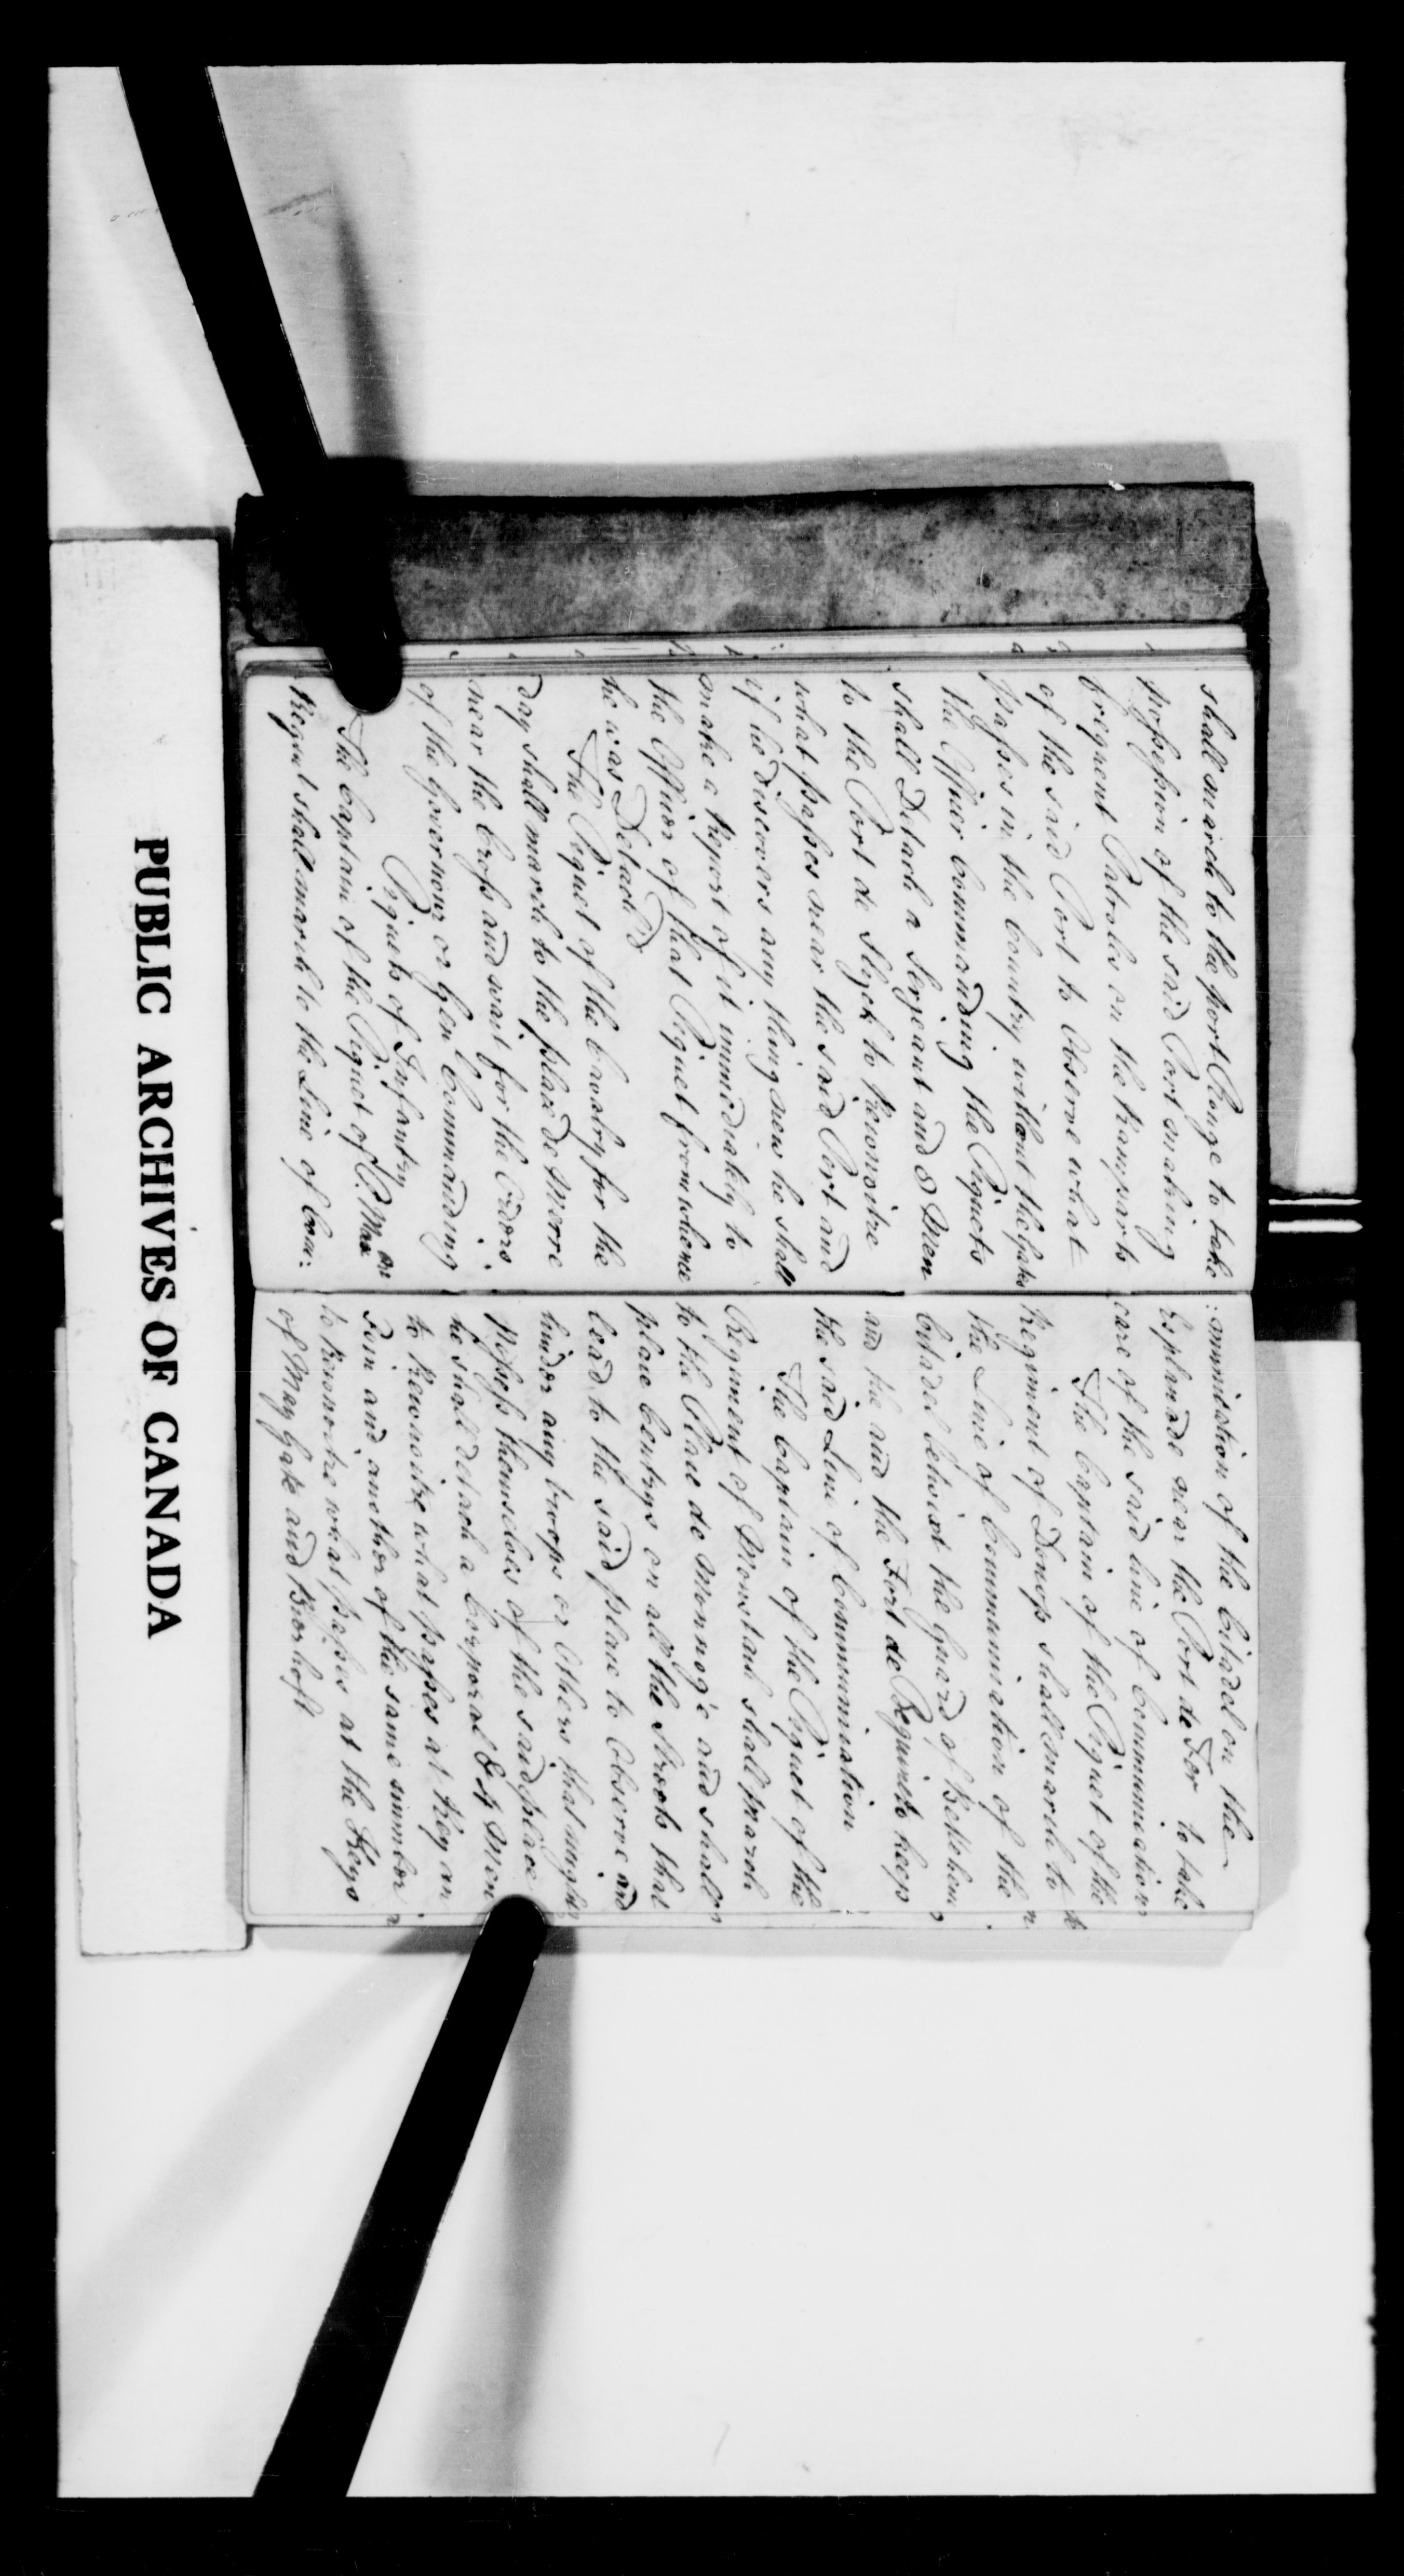 shall march to the port Rouge to take
possession of the said Port making
frequent Patroles on the Ramparts
of the said Port to Observe what
passes in the Country without the Gate
the Officer Commanding the Piquets
shall Detach a Serjeant and 8 Men
to the Port de Slyck to Reconoitre
what passes near the said Port and
if he discovers any thing new he shall
make a Report of it immediately to
the Officer of that Piquet from whence
he was Detach'd
The Piquet of the Cavalry for the
day shall march to the place de Mierre
near the Cross and wait for the Orders
of the Governour or Gen Commanding
Piquets of Infantry
The Captain of the Piquet of
Regmt shall march to the Line of Com:
:munication of the Citadel on the
Esplanade near the Port de Fer to take
care of the said Line of Communication
The Captain of the Piquet of the
Regiment of Donop shall march to
the Line of Communication of the
Citadel betwixt the Guard of Bethlehem
and the and the Fort de Requin to keep
the said Line of Communication
The Captain of the Piquet of the
Regiment of shall march
to the Place de Monnoye and shall
place Centrys on all the Streets that
lead to the said place to Observe and
hinder any troops or Others that might
Possess themselves of the said place
he shall detach a Corporal & 4 Men
to Reconoitre what passes at
Foin and another of the same number
to Reconoitre what passes at the Keys
of May Gate and
PUBLIC ARCHIVES OF CANADA